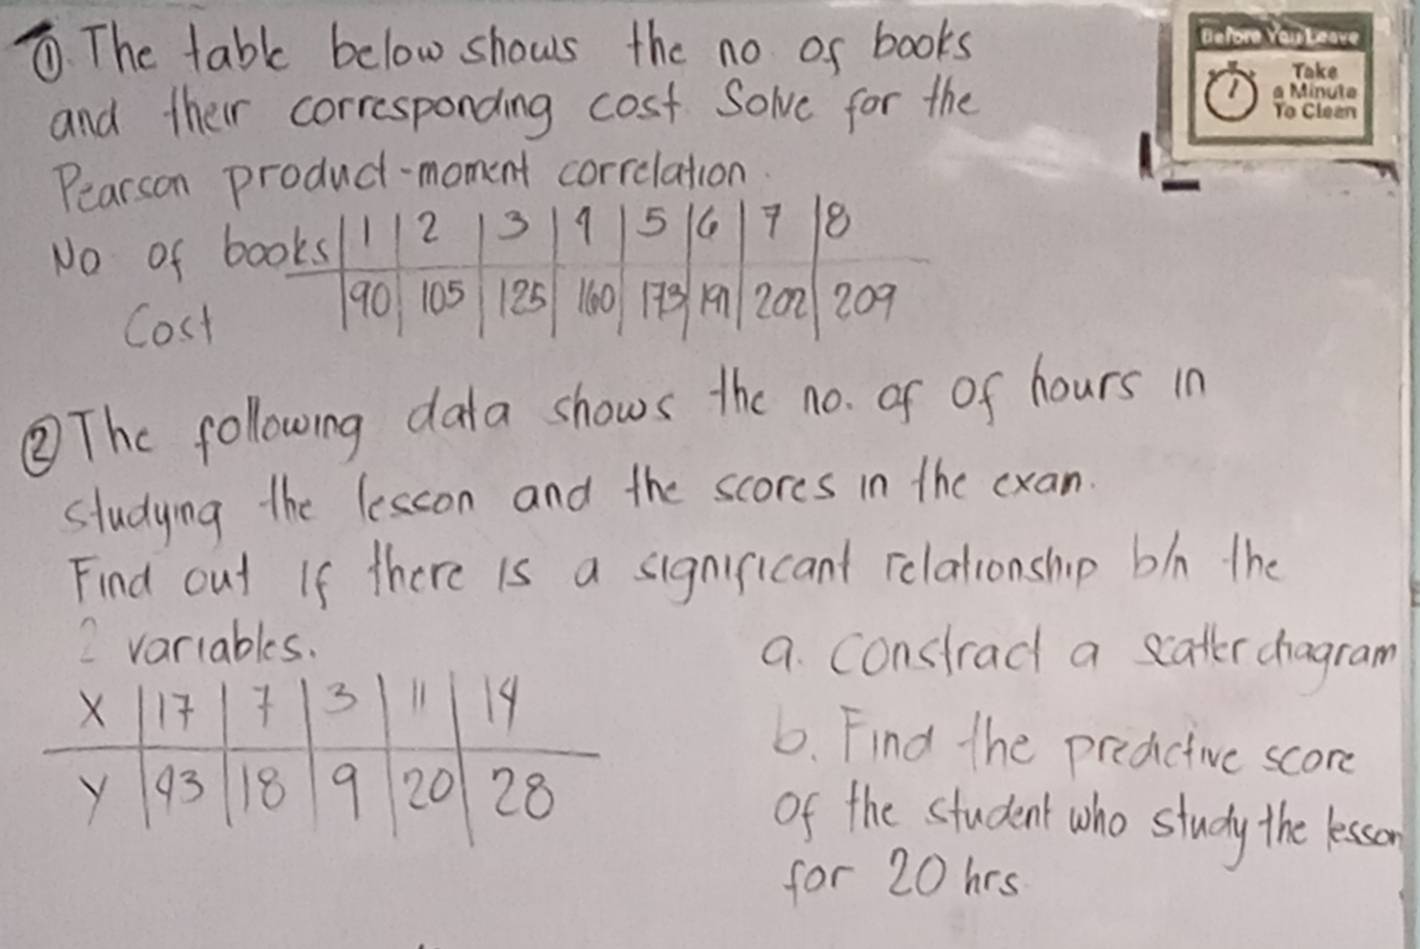 ① The table below shows the no of books
and their corresponding cost. Solve for the
Pearson product-moment correlation.
No of books | 1 | 2 | 3 | 4 | 5 | 6 | 7 | 8
Cost | 90 | 105 | 125 | 160 | 173 | 191 | 202 | 209
② The following data shows the no. of of hours in
studying the lesson and the scores in the exan.
Find out if there is a significant relationship b/n the
2 variables.
X | 17 | 7 | 3 | 11 | 14
Y | 43 | 18 | 9 | 20 | 28
a. constract a scatter diagram
b. Find the predictive score
of the student who study the lesson
for 20 hrs
Before You Leave
Take
a Minute
To Clean